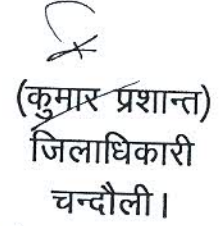 (कुमार प्रशान्त)
जिलाधिकारी
चन्दौली।